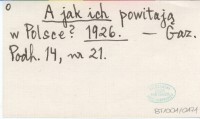 0
A jak ich powitają
w Polsce? 1926. — Gaz.
Podh. 14, nr 21.